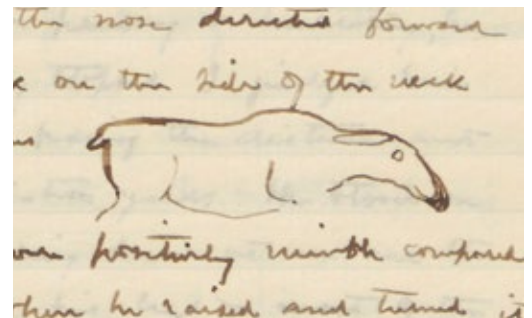 the nose, directed forward
on the side of the neck
were positively nimble compared
when he raised and turned